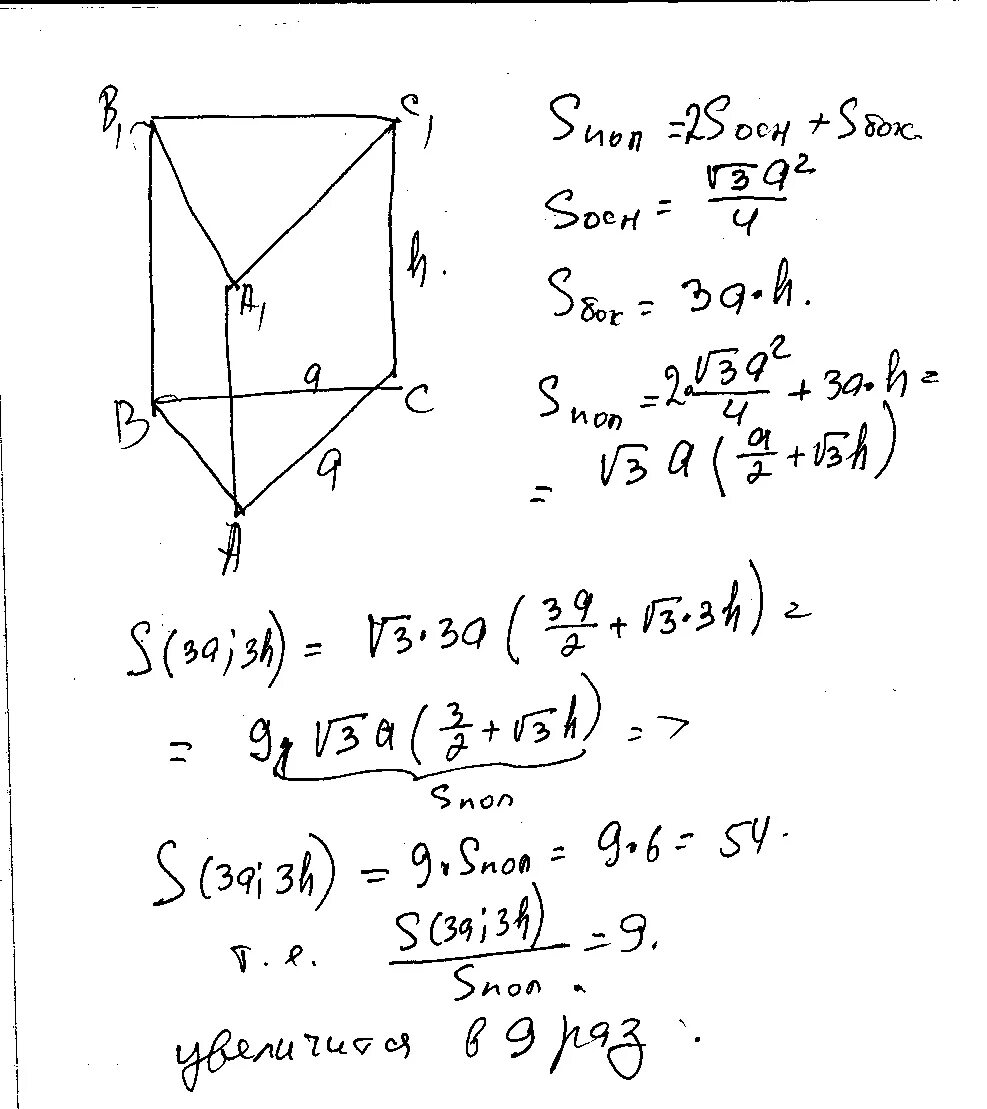 B₁
C₁
A₁
h.
a
B
C
a
A
Sпоп = 2Sосн + Sбок.
Sосн = √3a²/4
Sбок = 3a·h.
Sпоп = 2·√3a²/4 + 3a·h =
= √3 a (a/2 + √3h)
S(3a; 3h) = √3·3a (3a/2 + √3·3h) =
= 9· √3 a (3/2 + √3h) =>
Sпоп
S(3a; 3h) = 9·Sпоп = 9·6 = 54.
т.е. S(3a; 3h)/Sпоп = 9.
увеличится в 9 раз.